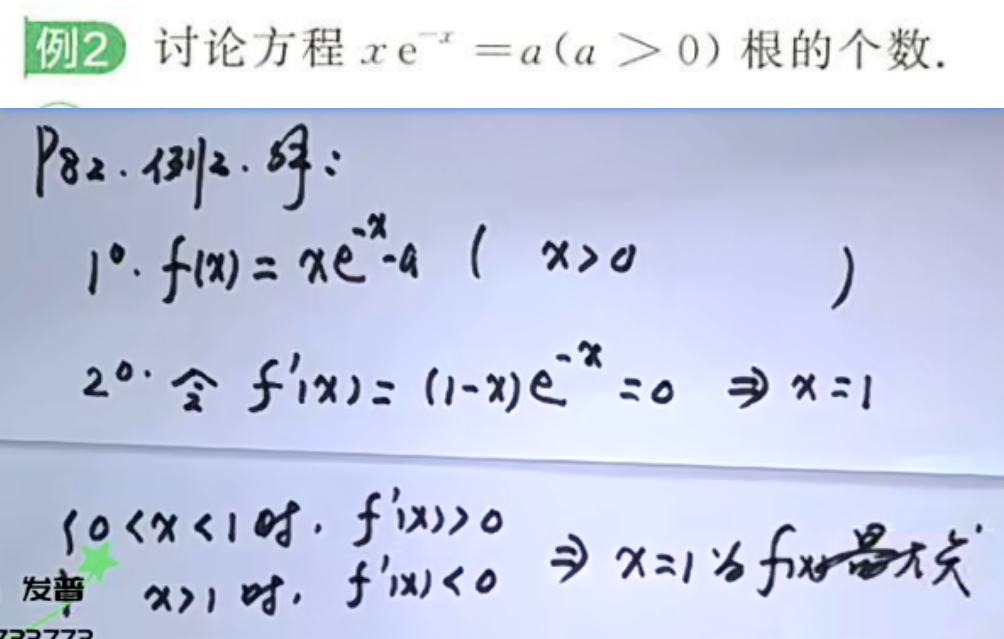 例2 讨论方程 xe⁻ˣ = a(a > 0) 根的个数.
P82. 例2. 解:
1°. f(x) = xe⁻ˣ-a ( x>0 )
2°. 令 f'(x) = (1-x)e⁻ˣ = 0 ⇒ x = 1
{ 0<x<1时, f'(x)>0
x>1时, f'(x)<0 ⇒ x=1为f(x)最大点
发普